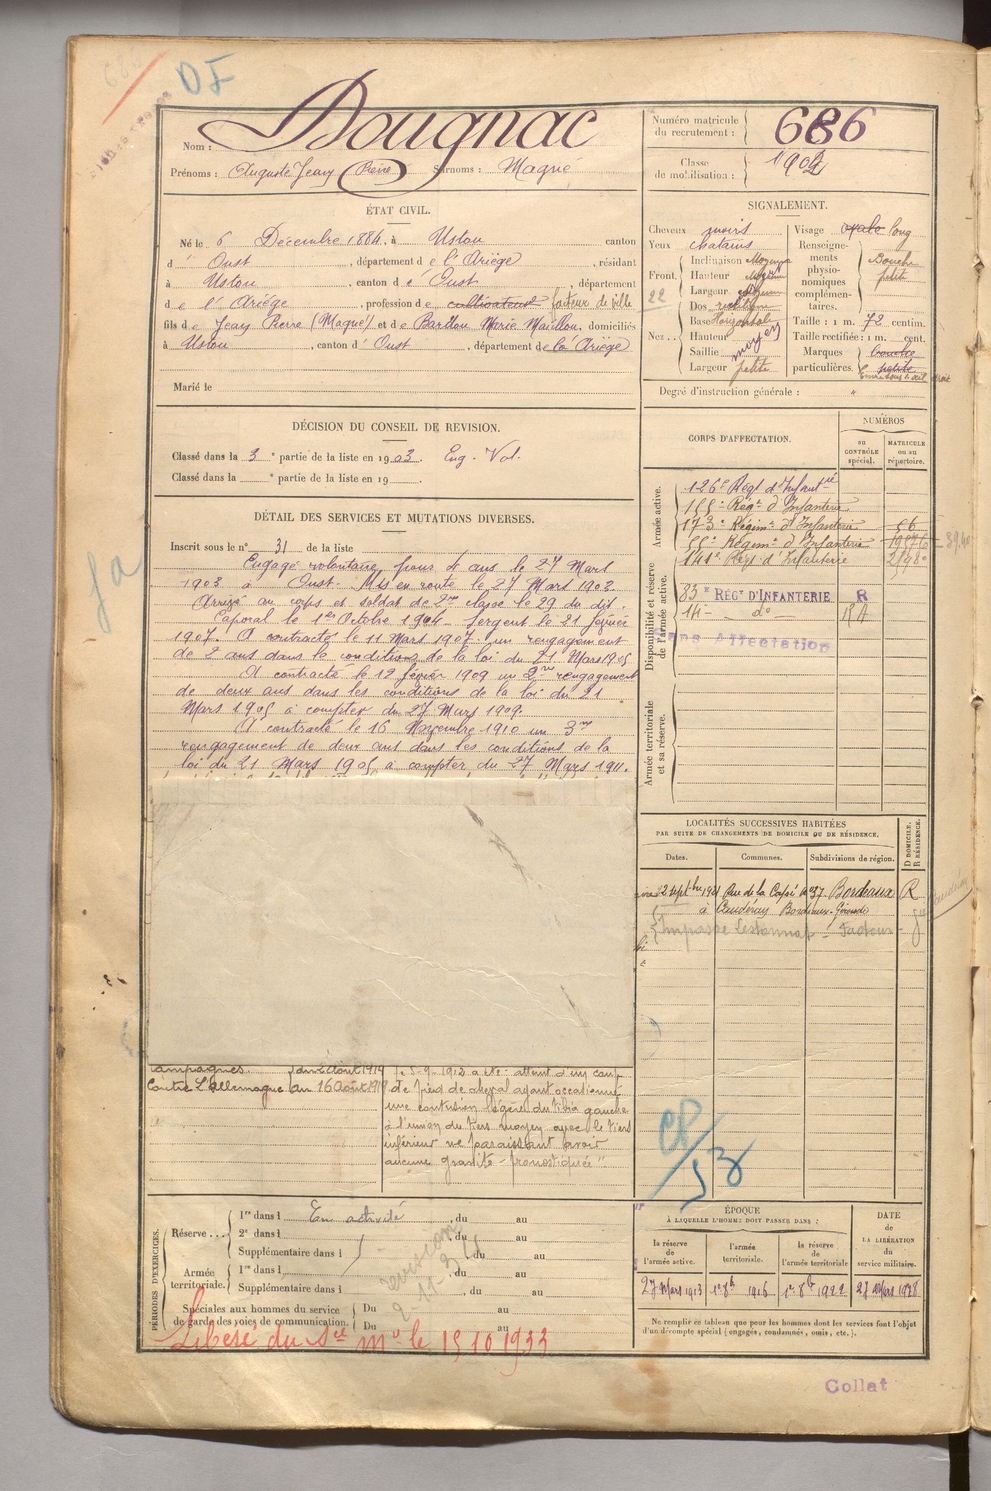 DF
Nom : Dougnac
Prénoms : Auguste Jean Pierre Surnoms : Magné
Numéro matricule du recrutement : 686
Classe de mobilisation : 1902
ÉTAT CIVIL.
Né le 6 Décembre 1884, à Ustou canton
d' Oust, département de l'Ariège, résidant
à Ustou, canton d' Oust, département
de l'Ariège, profession de cultivateur facteur de ville
fils de Jean Pierre (Magné) et de Barthou Marie Maillou, domiciliés
à Ustou, canton d' Oust, département de l'Ariège
Marié le
SIGNALEMENT.
Cheveux noirs
Yeux chatains
Front. Inclinaison Moyenne
Hauteur Moyenne
Largeur
Nez... Dos rectiligne
Base Horizontale
Hauteur moyen
Saillie
Largeur petite
22
Visage ovale long
Renseignements physionomiques complémentaires. Bouche petite
Taille : 1 m. 72 centim.
Taille rectifiée : 1 m. cent.
Marques particulières. bouche petite
Degré d'instruction générale : "
DÉCISION DU CONSEIL DE REVISION.
Classé dans la 3e partie de la liste en 1903. Eng. Vol.
Classé dans la e partie de la liste en 19
DÉTAIL DES SERVICES ET MUTATIONS DIVERSES.
Inscrit sous le n° 31 de la liste
Engagé volontaire pour 4 ans le 27 Mars
1903 à Oust. Mis en route le 27 Mars 1903.
Arrivé au corps et soldat de 2me classe le 29 du dit.
Caporal le 1er Octobre 1904. Sergent le 21 février
1907. A contracté le 11 Mars 1907 un rengagement
de 2 ans dans les conditions de la loi du 21 Mars 1905
A contracté le 12 février 1909 un 2me rengagement
de deux ans dans les conditions de la loi du 21
Mars 1905 à compter du 27 Mars 1909.
A contracté le 16 Novembre 1910 un 3me
rengagement de deux ans dans les conditions de la
loi du 21 Mars 1905 à compter du 27 Mars 1911.
campagnes. du 2 août 1914
Contre l'Allemagne au 16 Août 1917
le 5-9-1912 a été atteint d'un coup
de pied de cheval ayant occasionné
une contusion légère du tibia gauche
à l'union du tiers moyen avec le tiers
inférieur ne paraissant avoir
aucune gravité - pronostiquée"
CORPS D'AFFECTATION.
NUMÉROS
au contrôle spécial.
MATRICULE ou au répertoire.
Armée active.
126e Régt d'Infantrie
155e Régt d'Infanterie
173e Régim. d'Infanterie 56
55e Régim. d'Infanterie
141e Régt d'Infanterie
Disponibilité et réserve de l'armée active.
83e RÉGt D'INFANTERIE R
14- do- RA
Sans Affectation
Armée territoriale et sa réserve.
LOCALITÉS SUCCESSIVES HABITÉES
PAR SUITE DE CHANGEMENTS DE DOMICILE OU DE RÉSIDENCE.
Dates. Communes. Subdivisions de région. D DOMICILE. R RÉSIDENCE.
22 septbre 1921 Rue de la Capé n°37 Bordeaux R
à Caudéran Bordeaux-Gironde
Impasse Lestonnat - Facteur -
PÉRIODES D'EXERCICES.
Réserve... 1re dans l En activité, du au
2e dans l, du au
Supplémentaire dans l, du au
Armée territoriale. 1re dans l, du au
Supplémentaire dans l, du au
Spéciales aux hommes du service de garde des voies de communication. Du au
Du au
Libéré du Sce Mre le 15 10 1933
ÉPOQUE
À LAQUELLE L'HOMME DOIT PASSER DANS :
la réserve de l'armée active. l'armée territoriale. la réserve de l'armée territoriale
DATE de LA LIBÉRATION du service militaire.
27 Mars 1913 1er 8b 1916 1er 8b 1922 27 Mars 1928
Ne remplir ce tableau que pour les hommes dont les services sont l'objet
d'un décompte spécial (engagés, condamnés, omis, etc.).
Collat